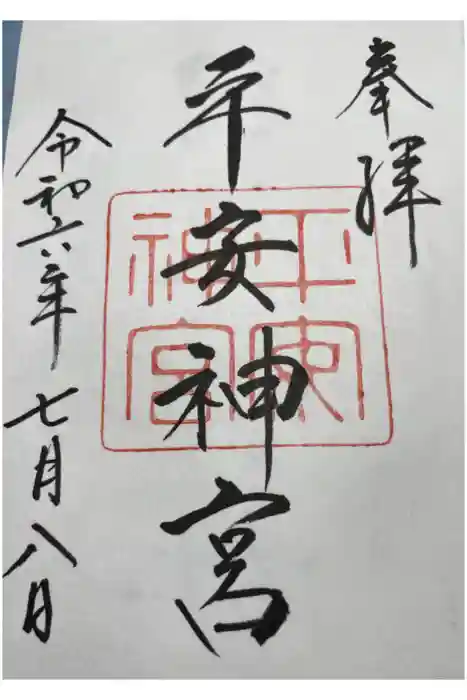 奉拝
平安神宮
平安神宮
令和六年七月八日